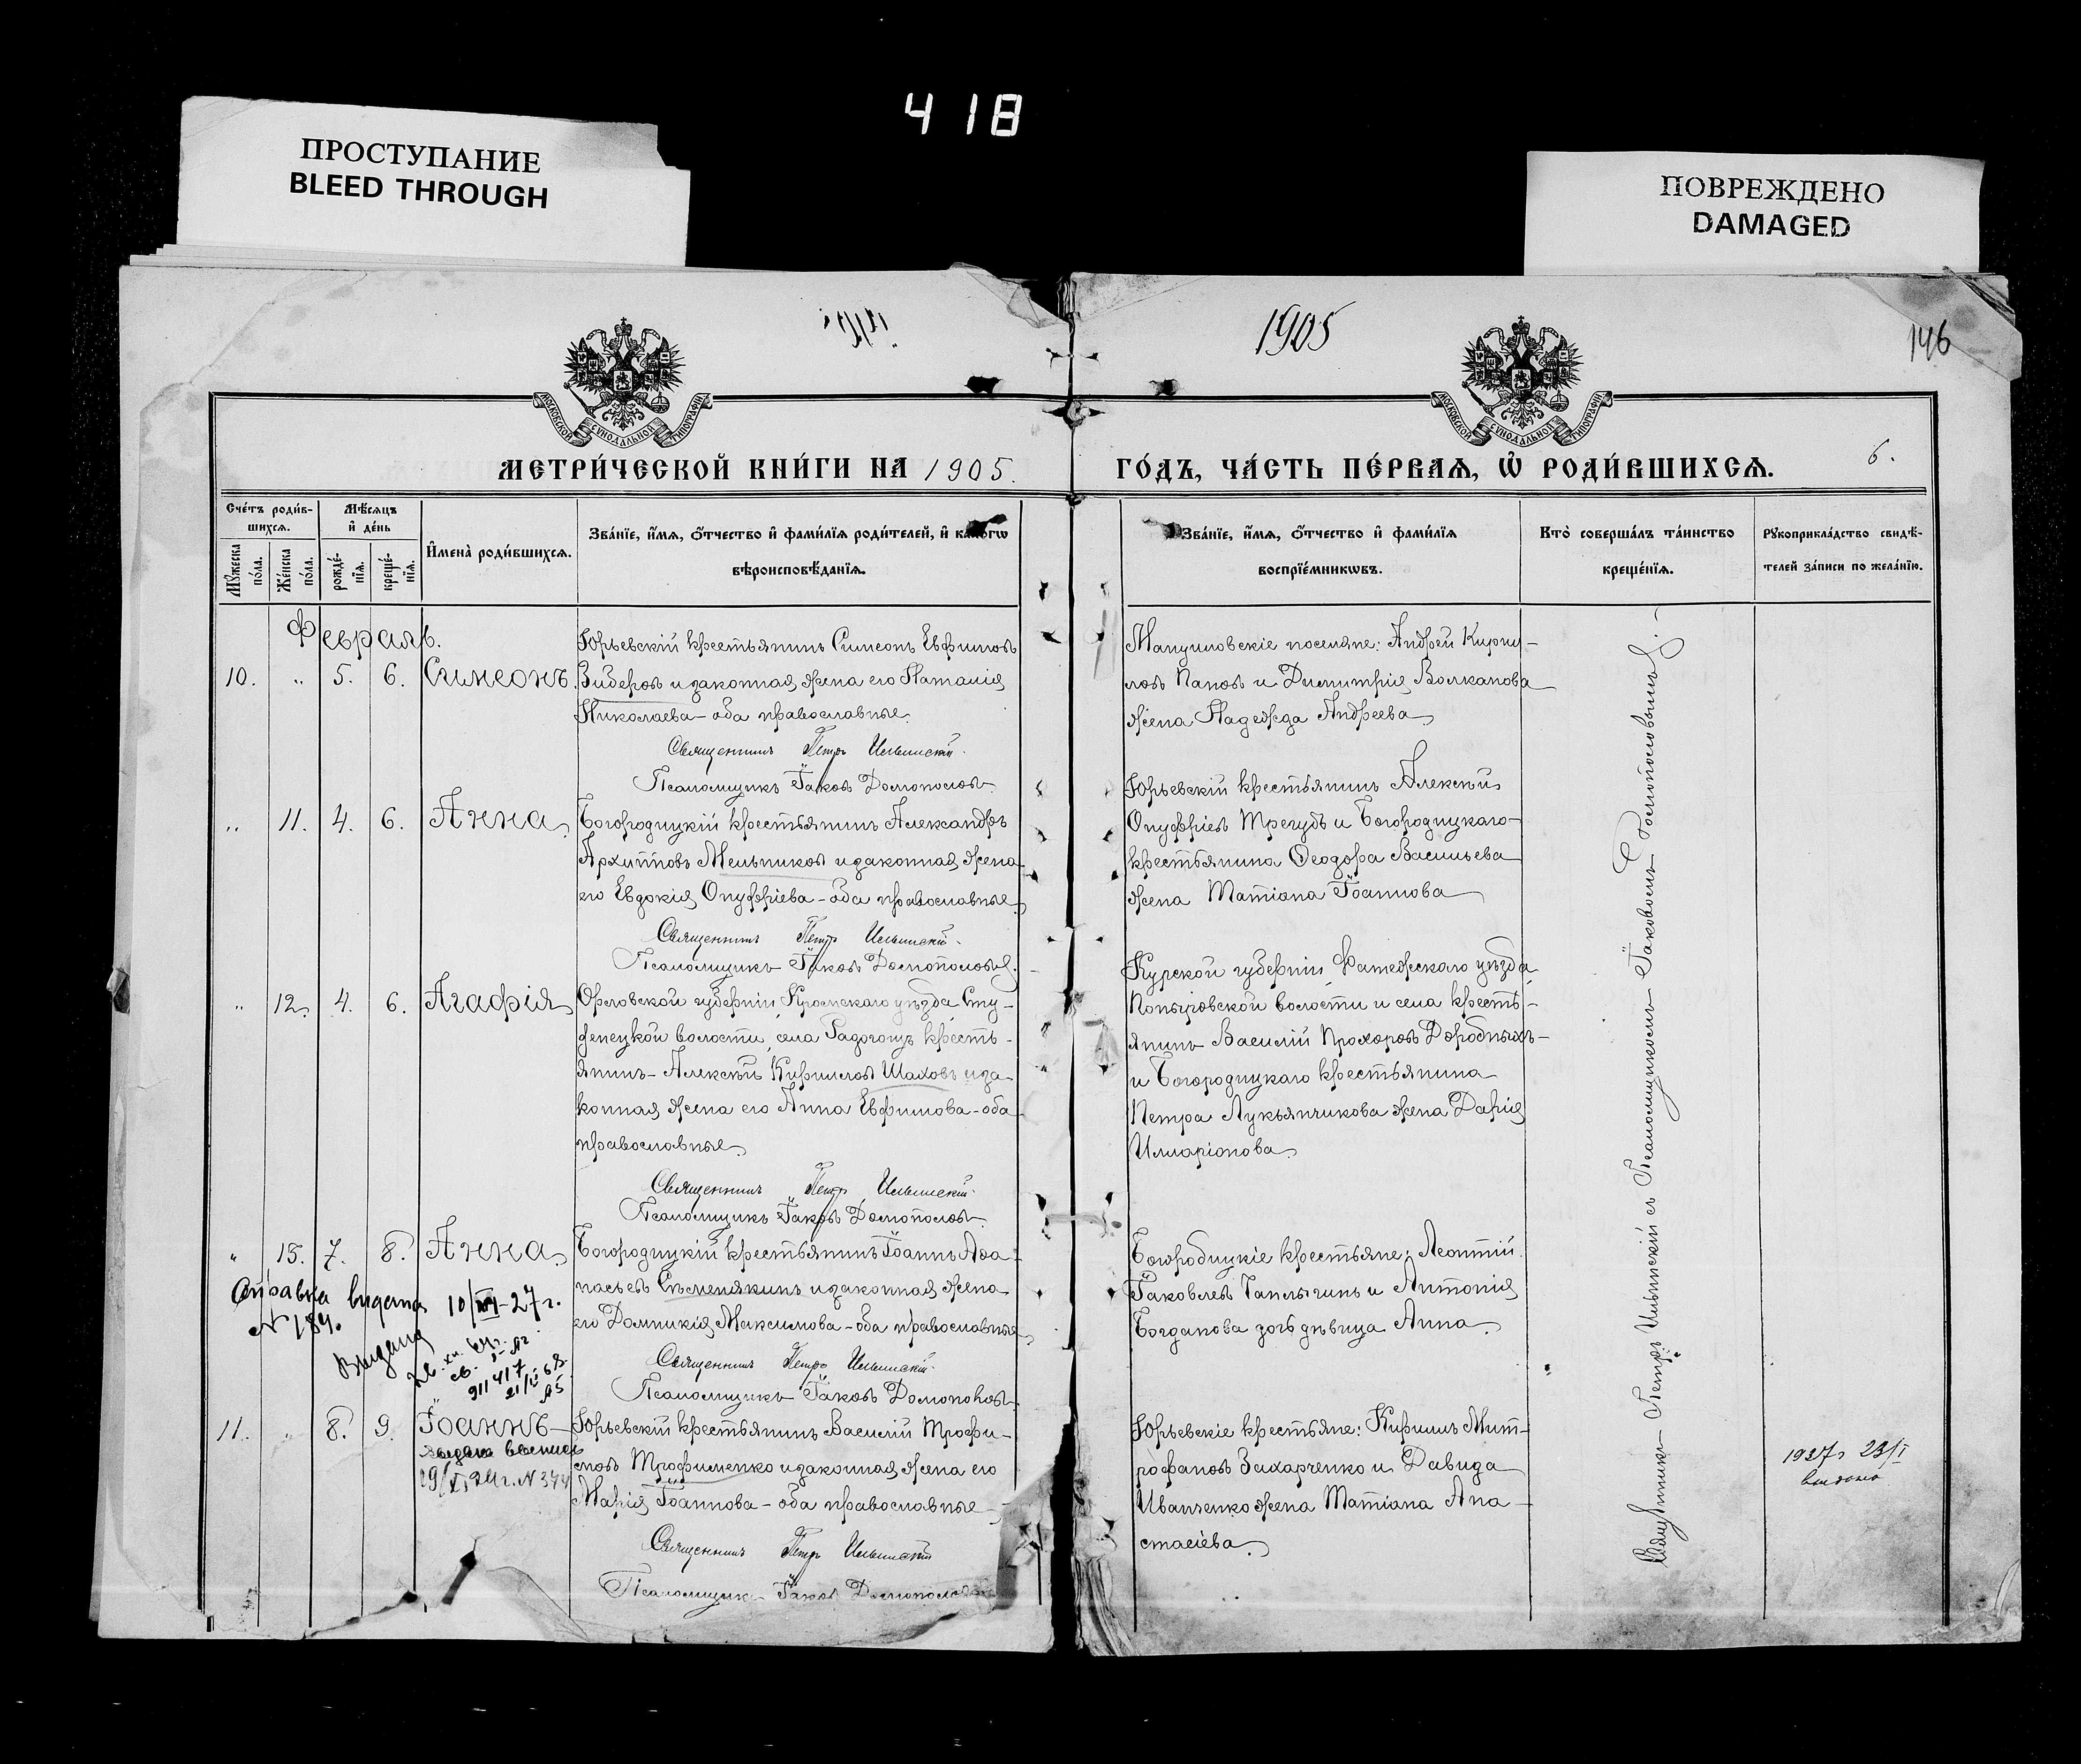 418
ПРОСТУПАНИЕ
BLEED THROUGH
ПОВРЕЖДЕНО
DAMAGED
1905
146
МОСКОВСКОЙ СУНОДАЛЬНОЙ ТИПОГРАФІИ
МОСКОВСКОЙ СУНОДАЛЬНОЙ ТИПОГРАФІИ
МЕТРИ́ЧЕСКОЙ КНИ́ГИ НА 1905.
ГО́ДЪ, ЧА́СТЬ ПЕ́РВАѦ, Ѡ҆ РОДИ́ВШИХСѦ.
6.
Сче́тъ роди́в-
шихсѧ.
Мѣ́сѧцъ
и҆ де́нь
Мꙋ́жеска по́ла.
Же́нска по́ла.
рожде́-
нїѧ.
креще́-
нїѧ.
И҆мена̀ роди́вшихсѧ.
Зва́нїе, и҆́мѧ, ѻ҆́тчество и҆ фами́лїѧ роди́телей, и҆ како́гѡ
вѣроисповѣ́данїѧ.
Зва́нїе, и҆́мѧ, ѻ҆́тчество и҆ фами́лїѧ
воспрїе́мникѡвъ.
Кто̀ соверша́лъ та́инство
креще́нїѧ.
Рꙋкоприкла́дство свидѣ́-
телей за́писи по жела́нїю.
Февраль.
10. „ 5. 6. Симеонъ.
Юрьевскій крестьянинъ Симеонъ Евфимовъ
Зиберовъ и законная жена его Наталія
Николаева - оба православные.
Священникъ Петръ Ильинскій.
Псаломщикъ Іаковъ Домополовъ.
Андрей Кирил-
ловъ Пановъ и Димитрія Волканова
жена Надежда Андреева
„ 11. 4. 6. Анна.
Богородицкій крестьянинъ Александръ
Архипповъ Мельниковъ и законная жена
его Евдокія Онуфріева - оба православные
Священникъ Петръ Ильинскій.
Псаломщикъ Іаковъ Домополовъ.
Юрьевскій крестьянинъ Алексѣй
Онуфріевъ Трегубъ и Богородицкаго
крестьянина Ѳеодора Васильева
жена Татіана Іоаннова
„ 12. 4. 6. Агафія
Орловской губерніи, Кромскаго уѣзда, Сту-
денецкой волости, села Радогощъ кресть-
янинъ - Алексѣй Кирилловъ Шаховъ и за-
конная жена его Анна Евфимова - оба
православные.
Священникъ Петръ Ильинскій.
Псаломщикъ Іаковъ Домополовъ.
Курской губерніи, Фатежскаго уѣзда,
волости и села кресть-
янинъ Василій Прохоровъ Дородныхъ
и Богородицкаго крестьянина
Петра Лукьянчикова жена Дарія
Илларіонова.
„ 13. 7. 8. Анна.
Богородицкій крестьянинъ Іоаннъ Аѳа-
насьевъ и законная жена
его Домникія Максимова - оба православные
Священникъ Петръ Ильинскій.
Псаломщикъ Іаковъ Домополовъ.
Богородицкіе крестьяне: Леонтій
Іаковлевъ Таплыгинъ и Антонія
Богданова дочь дѣвица Анна.
Справка видана 10/ -27 г.
№ 184.
Выдана
11. „ 8. 9. Іоаннъ
Юрьевскій крестьянинъ Василій Трофи-
мовъ Трофименко и законная жена его
Марія Іоаннова - оба православные
Священникъ Петръ Ильинскій
Псаломщикъ Іаковъ Домополовъ
Юрьевскіе крестьяне: Кириллъ Мит-
рофановъ Захарченко и Давида
Иванченко жена Татіана Ана-
стасіева.
№ 344
Священникъ Петръ Ильинскій съ Псаломщикомъ Іаковомъ Домополовымъ.
1937г 23/I
выдано